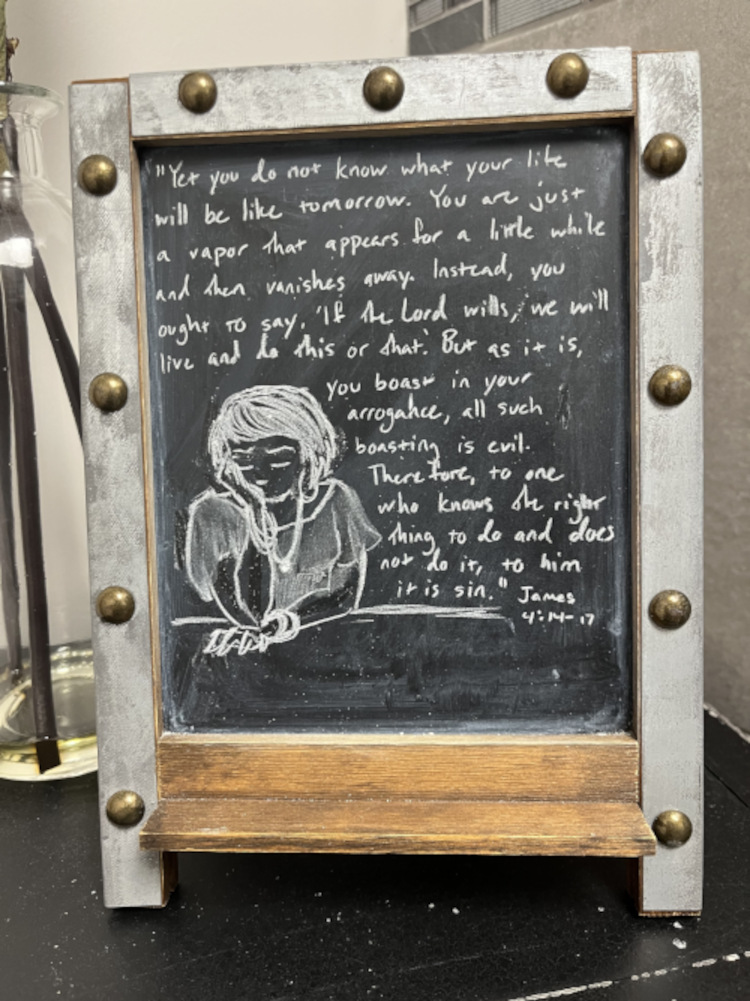 "Yet you do not know what your life
will be like tomorrow. You are just
a vapor that appears for a little while
and then vanishes away. Instead, you
ought to say, 'If the Lord wills, we will
live and do this or that.' But as it is,
you boast in your
arrogance, all such
boasting is evil.
Therefore, to one
who knows the right
thing to do and does
not do it, to him
it is sin." James
4:14-17